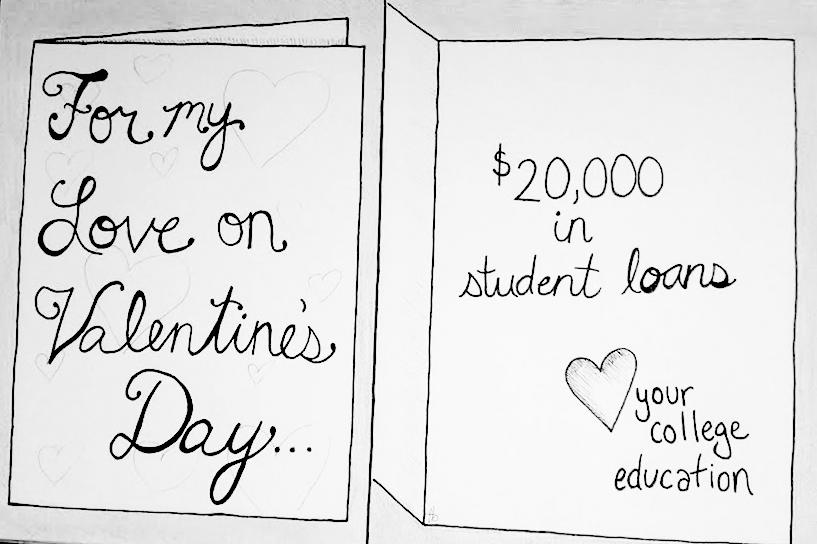 For my
Love on
Valentine's
Day...
$20,000
in
student loans
your
college
education